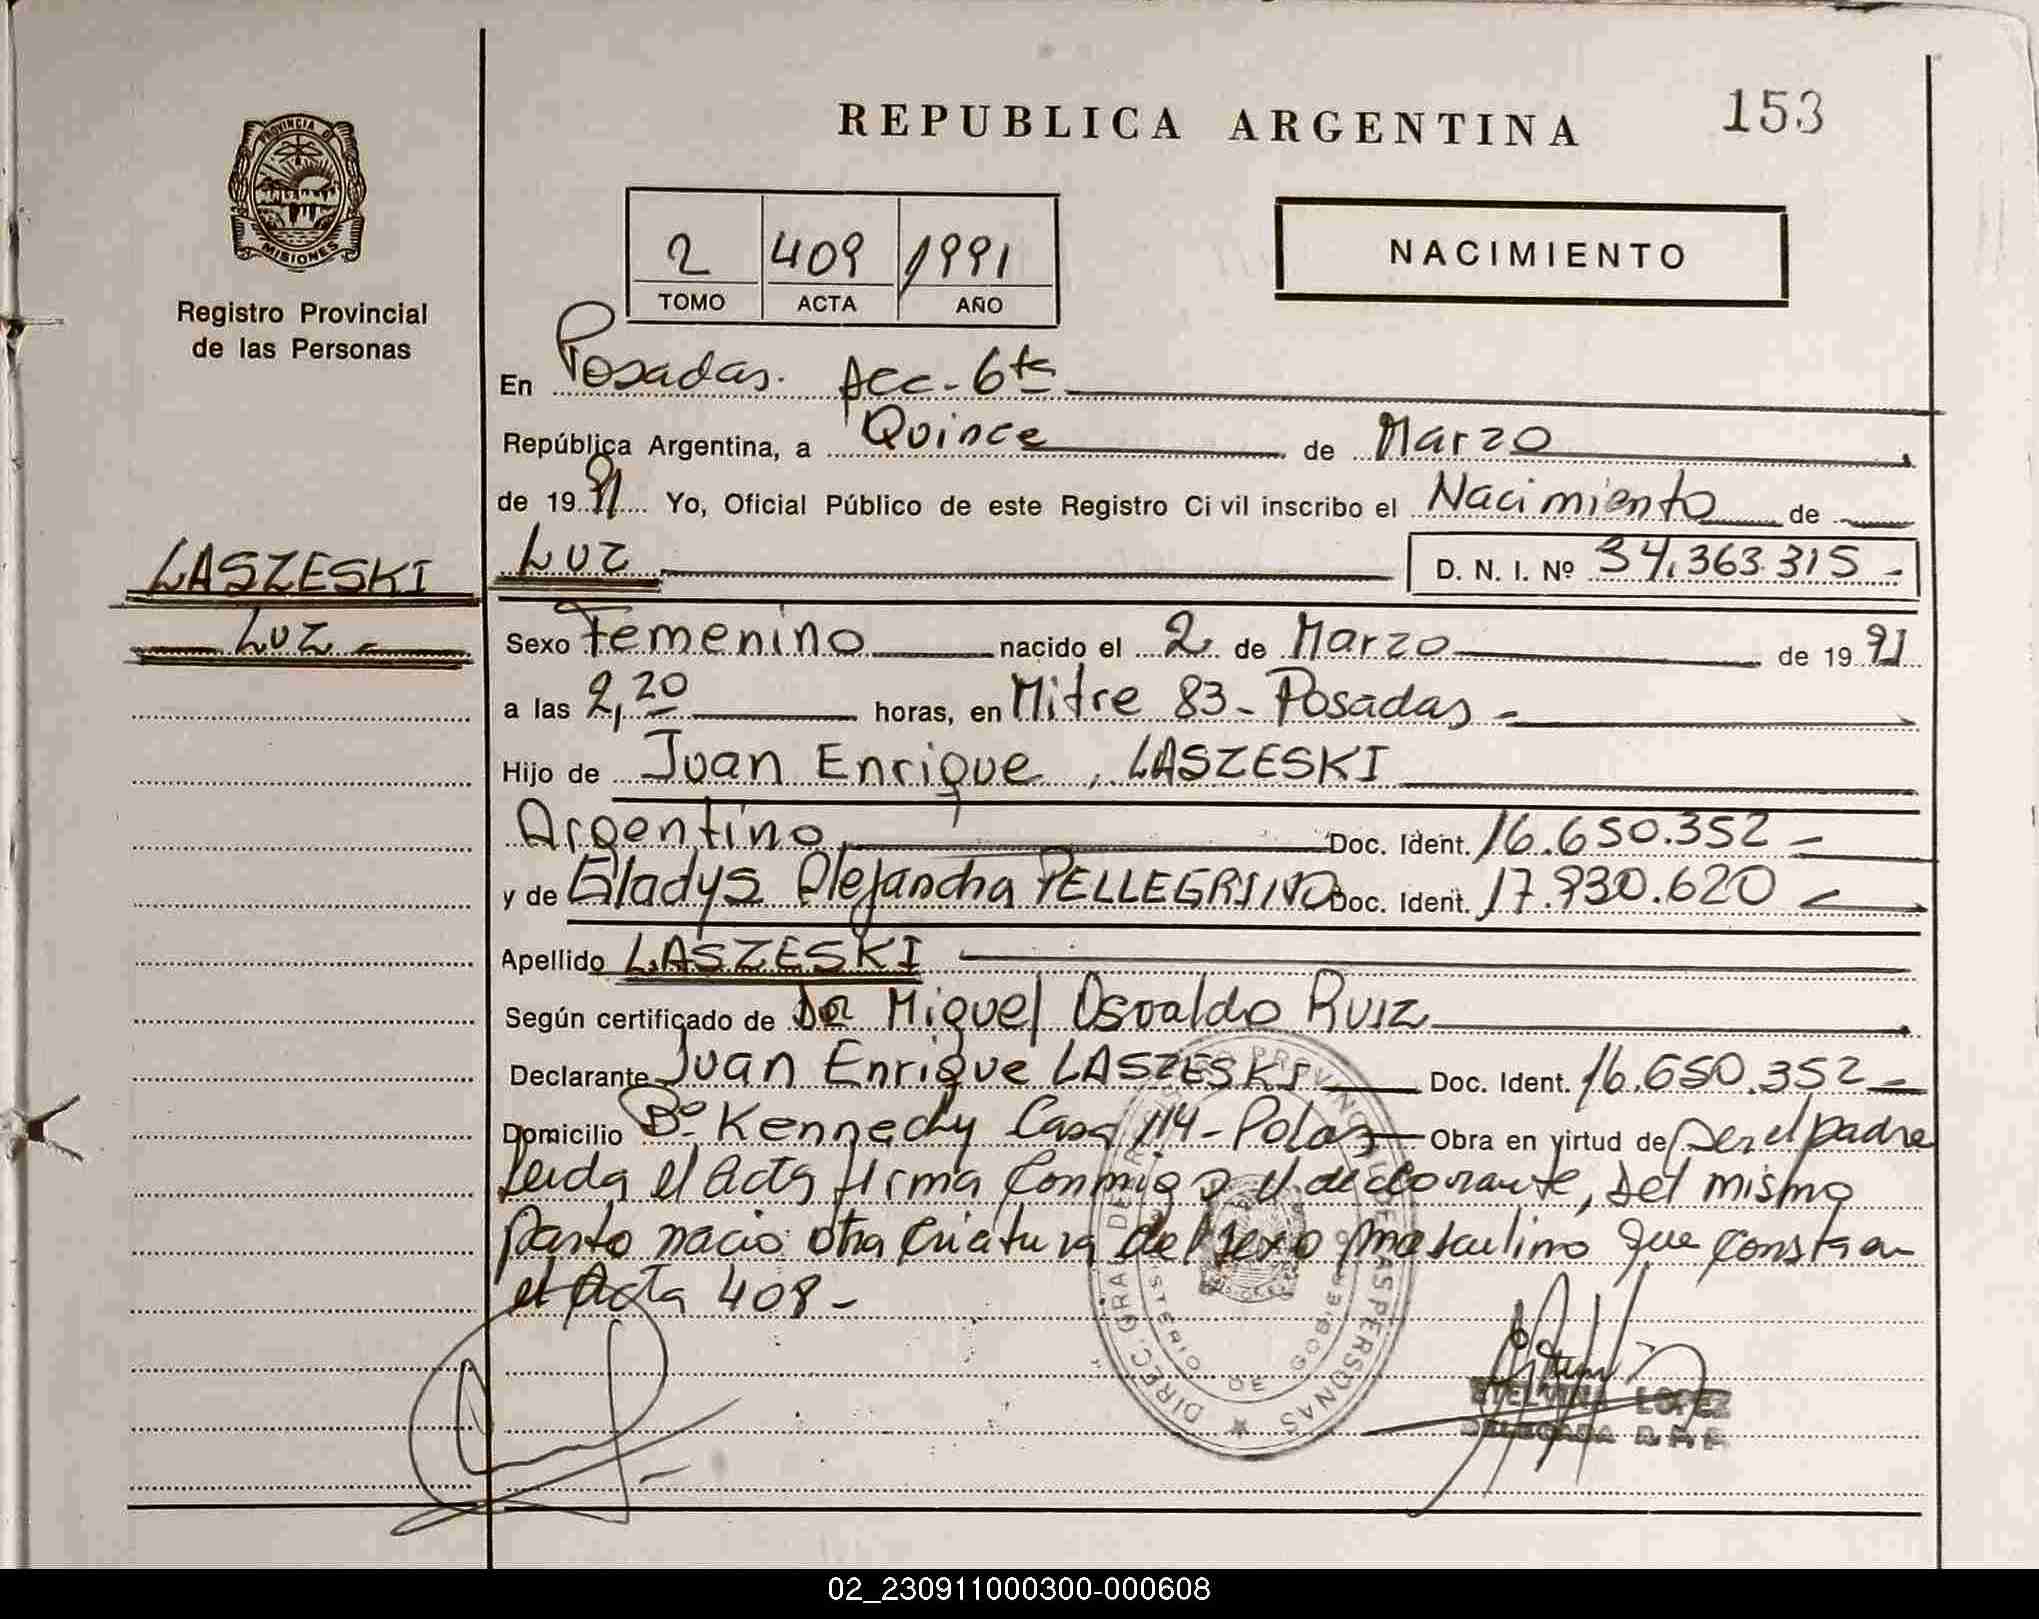 REPUBLICA ARGENTINA
153
PROVINCIA DE
MISIONES
Registro Provincial
de las Personas
2 409 1991
TOMO ACTA AÑO
NACIMIENTO
En Posadas. Acc-6ta
República Argentina, a Quince de Marzo
de 19 91 Yo, Oficial Público de este Registro Civil inscribo el Nacimiento de
LASZESKI
Luz
Luz D. N. I. Nº 34.363.315-
Sexo Femenino nacido el 2 de Marzo de 19 91
a las 2,20 horas, en Mitre 83- Posadas-
Hijo de Juan Enrique, LASZESKI
Argentino Doc. Ident. 16.650.352-
y de Gladys Alejandra PELLEGRINO Doc. Ident. 17.930.620
Apellido LASZESKI
Según certificado de Dr Miguel Osvaldo Ruiz
Declarante Juan Enrique LASZESKI Doc. Ident. 16.650.352-
Domicilio Bº Kennedy Casa 114- Pdas- Obra en virtud de ser el padre
leida el acta firma conmigo el declarante, del mismo
parto nacio otra criatura del sexo masculino que consta en
el Acta 408-
DIREC. GRAL DE REGISTRO PROVINCIAL DE LAS PERSONAS
MINISTERIO DE GOBIERNO
ETELVINA LOPEZ
DELEGADA R. P. P.
02_230911000300-000608